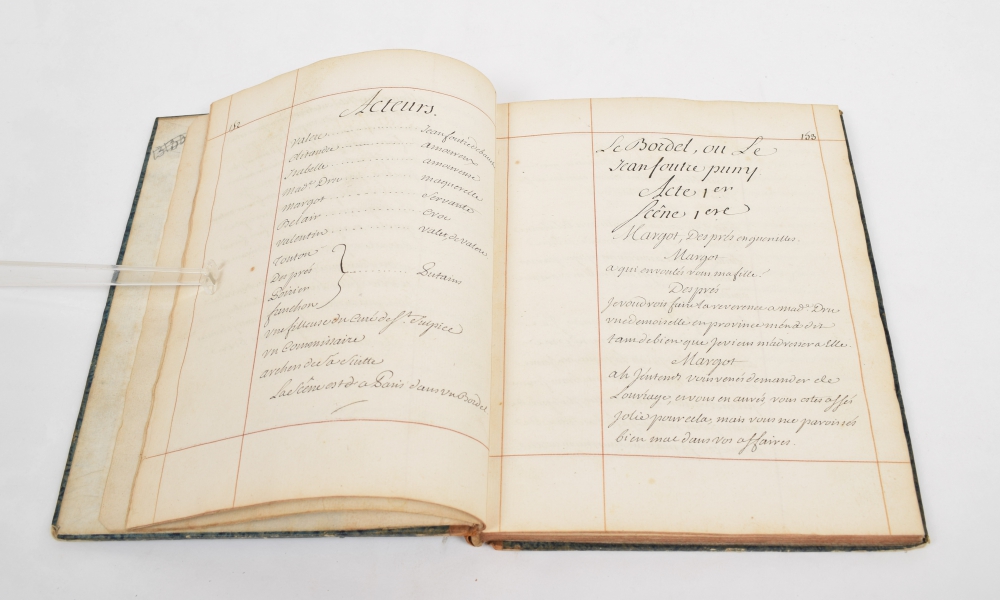 152
Acteurs.
Valere .......... Jean foutre de
Clitandre .......... amoureux
Isabelle .......... amoureuse
mad.e Dru .......... maquerelle
margot .......... servante
Belair .......... escroc
valentin .......... valet de valere
Tonton
Des prés
Poirier
fanchon
} .......... Putains
vne filleuse du Curé de St. Sulpice
vn Commissaire
archers de sa suitte
La Scêne est à Paris dans vn Bordel
153
Le Bordel, ou Le
Jean foutre puny
Acte 1er
Scêne 1ere
Margot, Des prés en guenilles.
Margot
a qui en voulés vous ma fille?
Des prés
Je voudrois faire la reverence a mad.e Dru
vne demoiselle en province m'en a dit
tant de bien que Je viens m'adresser a Elle.
Margot
ah J'entends vous venés demander de
Louvrage, et vous en aurés vous etes assés
Jolie pour cela, mais vous me paroissés
bien mal dans vos affaires.